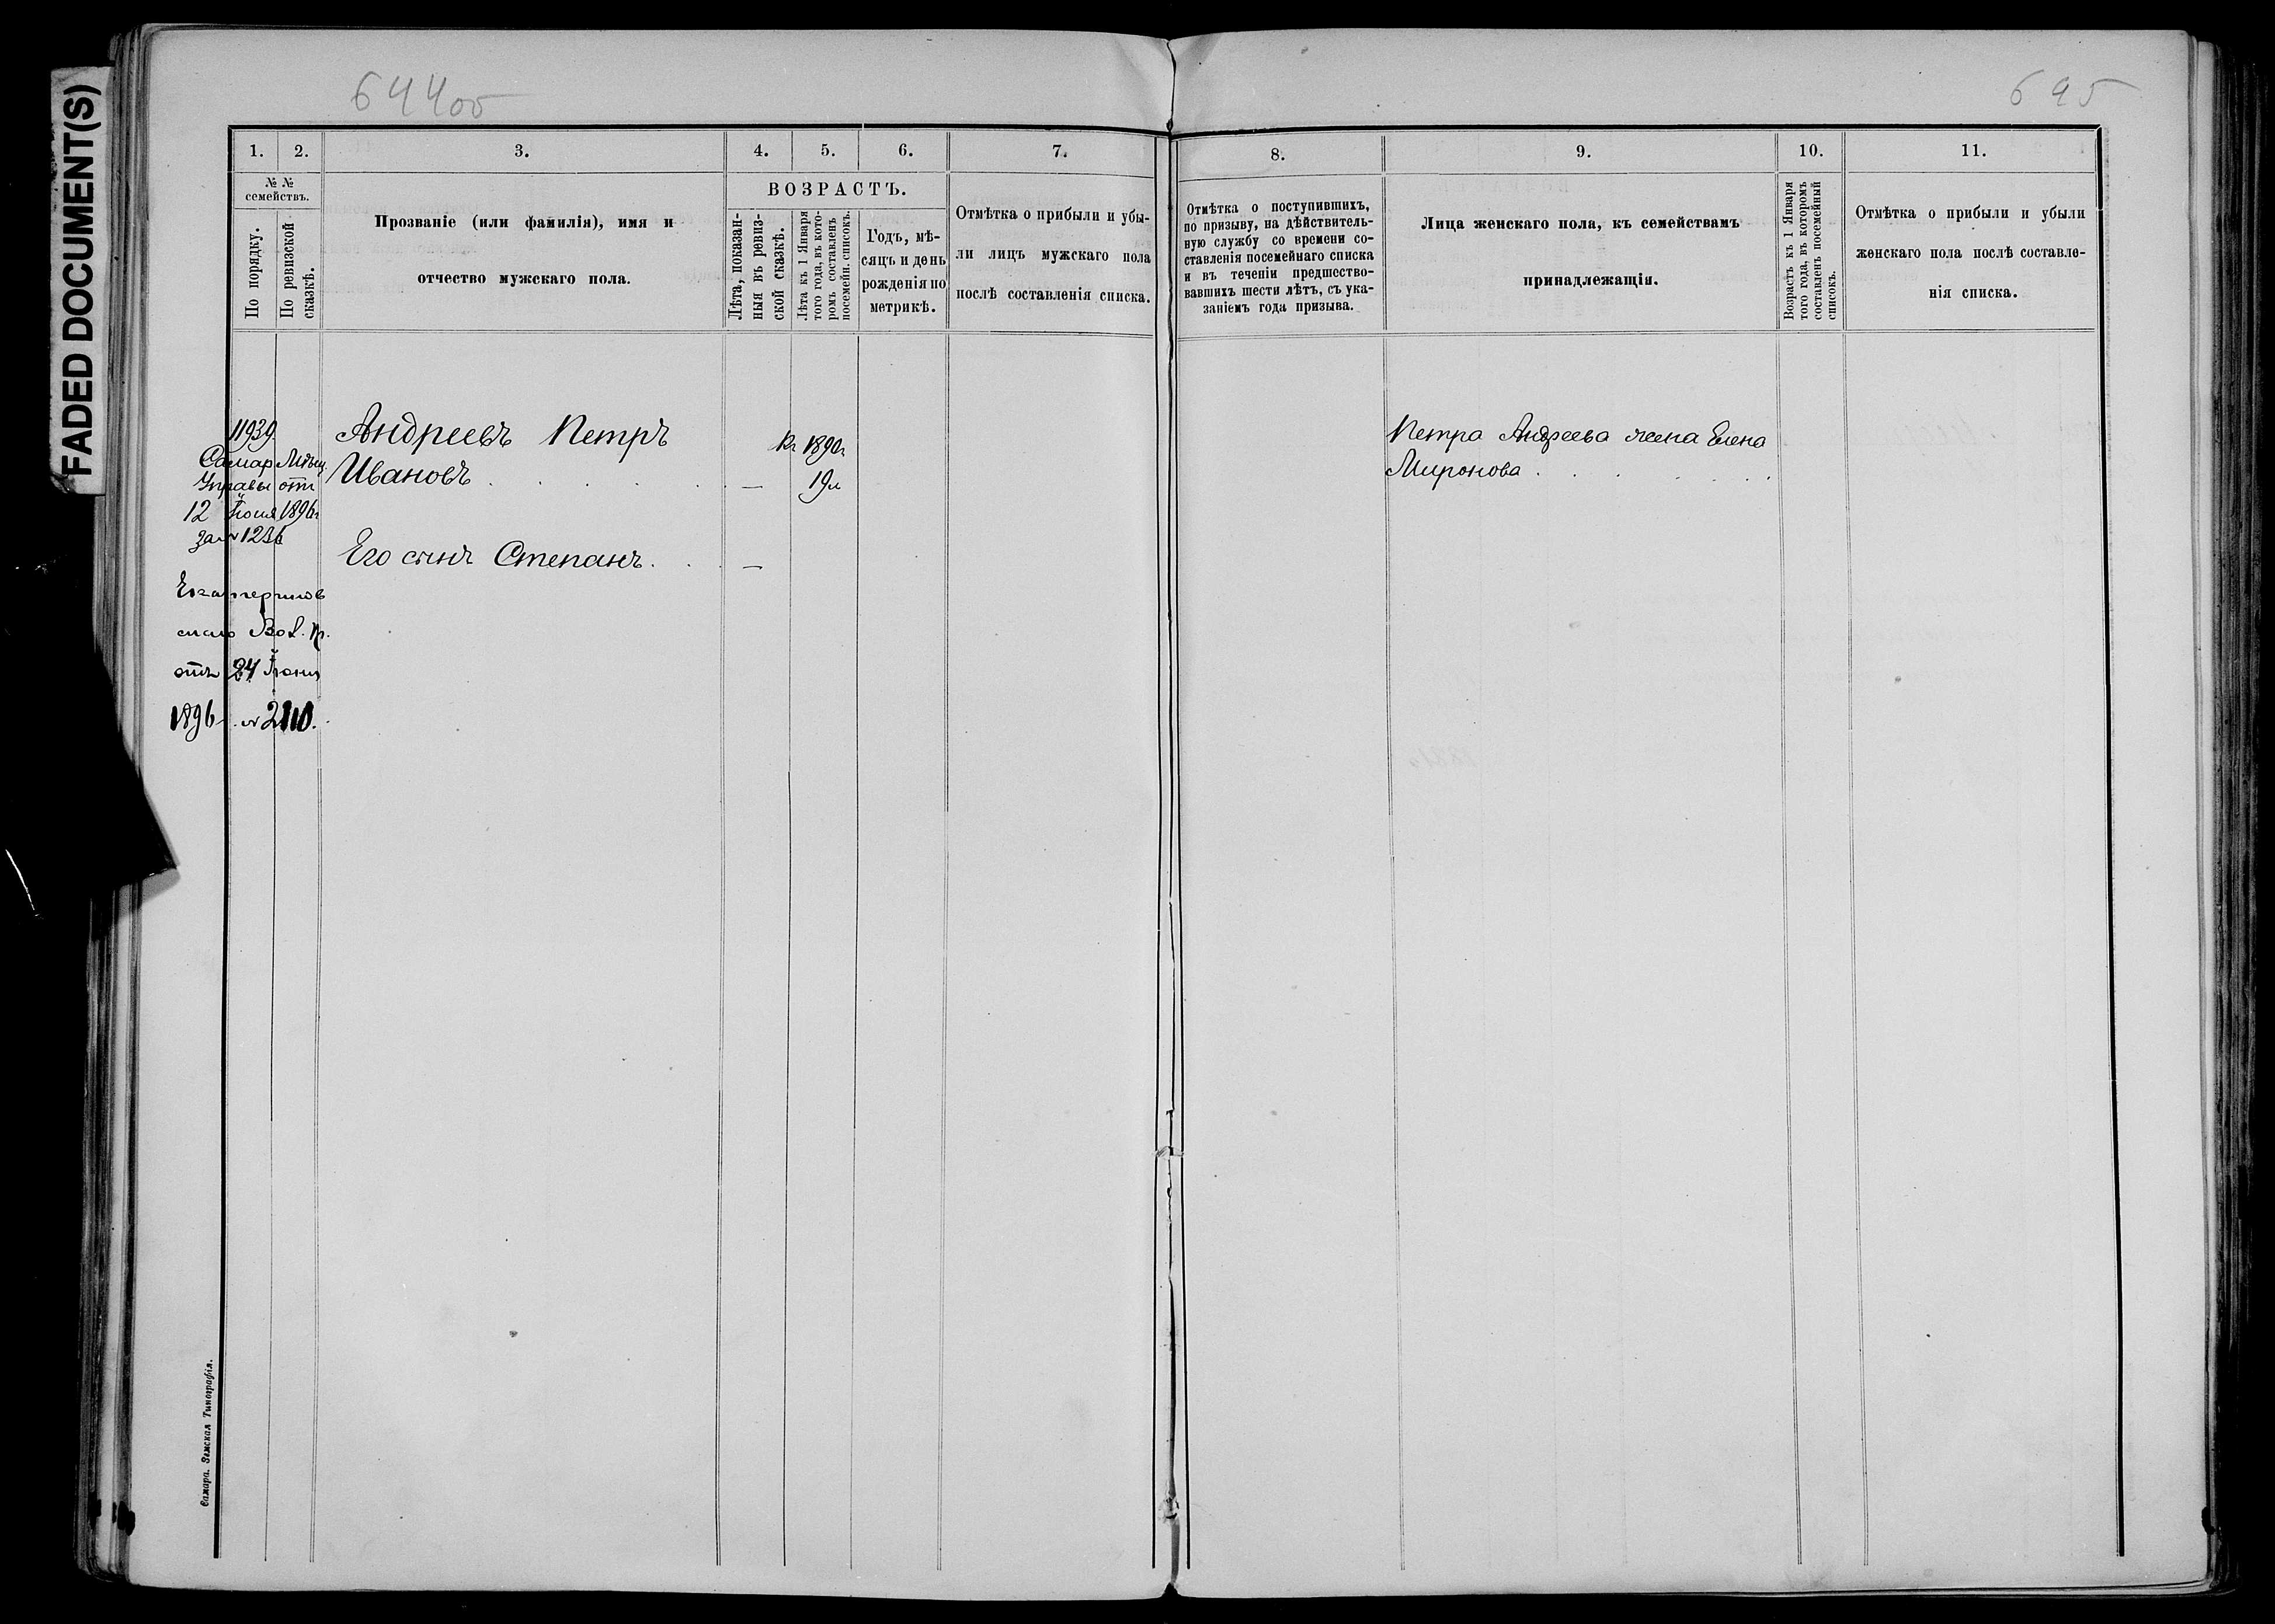 FADED DOCUMENT(S)
644об
695
1. 2. 3. 4. 5. 6. 7. 8. 9. 10. 11.
№ № семействъ.
По порядку.
По ревизской сказкѣ.
Прозваніе (или фамилія), имя и
отчество мужскаго пола.
ВОЗРАСТЪ.
Лѣта, показан-
ныя въ ревиз-
ской сказкѣ.
Лѣта къ 1 Января
того года, въ кото-
ромъ составленъ
посемейн. списокъ.
Годъ, мѣ-
сяцъ и день
рожденія по
метрикѣ.
Отмѣтка о прибыли и убы-
ли лицъ мужскаго пола
послѣ составленія списка.
Отмѣтка о поступившихъ,
по призыву, на дѣйствитель-
ную службу со времени со-
ставленія посемейнаго списка
и въ теченіи предшество-
вавшихъ шести лѣтъ, съ ука-
заніемъ года призыва.
Лица женскаго пола, къ семействамъ
принадлежащія.
Возрастъ къ 1 Января
того года, въ которомъ
составленъ посемейный
списокъ.
Отмѣтка о прибыли и убыли
женскаго пола послѣ составле-
нія списка.
11939
Самар Мѣщ.
Управы отъ
12 Іюня 1896г
за № 1236
Екатеринов
скаго Вол. Пр.
отъ 24 Іюня
1896 г. № 2110.
Андреевъ Петръ
Ивановъ . . . . . —
Къ 1890г
19л
Его сынъ Степанъ . . . —
Петра Андреева жена Елена
Миронова . . . . . .
Самара. Земская Типографія.